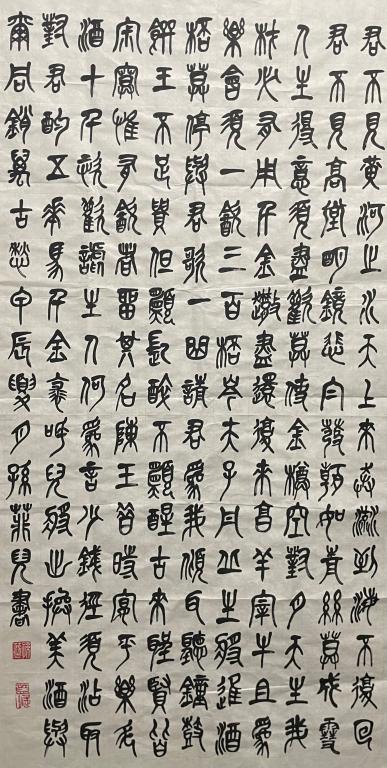 君不見黃河之水天上來奔流到海不復回
君不見高堂明鏡悲白髮朝如青絲暮成雪
人生得意須盡歡莫使金樽空對月天生我
材必有用千金散盡還復來烹羊宰牛且為
樂會須一飲三百杯岑夫子丹丘生將進酒
杯莫停與君歌一曲請君為我傾耳聽鐘鼓
饌玉不足貴但願長醉不願醒古來聖賢皆
寂寞惟有飲者留其名陳王昔時宴平樂斗
酒十千恣歡謔主人何為言少錢徑須沽取
對君酌五花馬千金裘呼兒將出換美酒與
爾同銷萬古愁甲辰夏月孫菲兒書